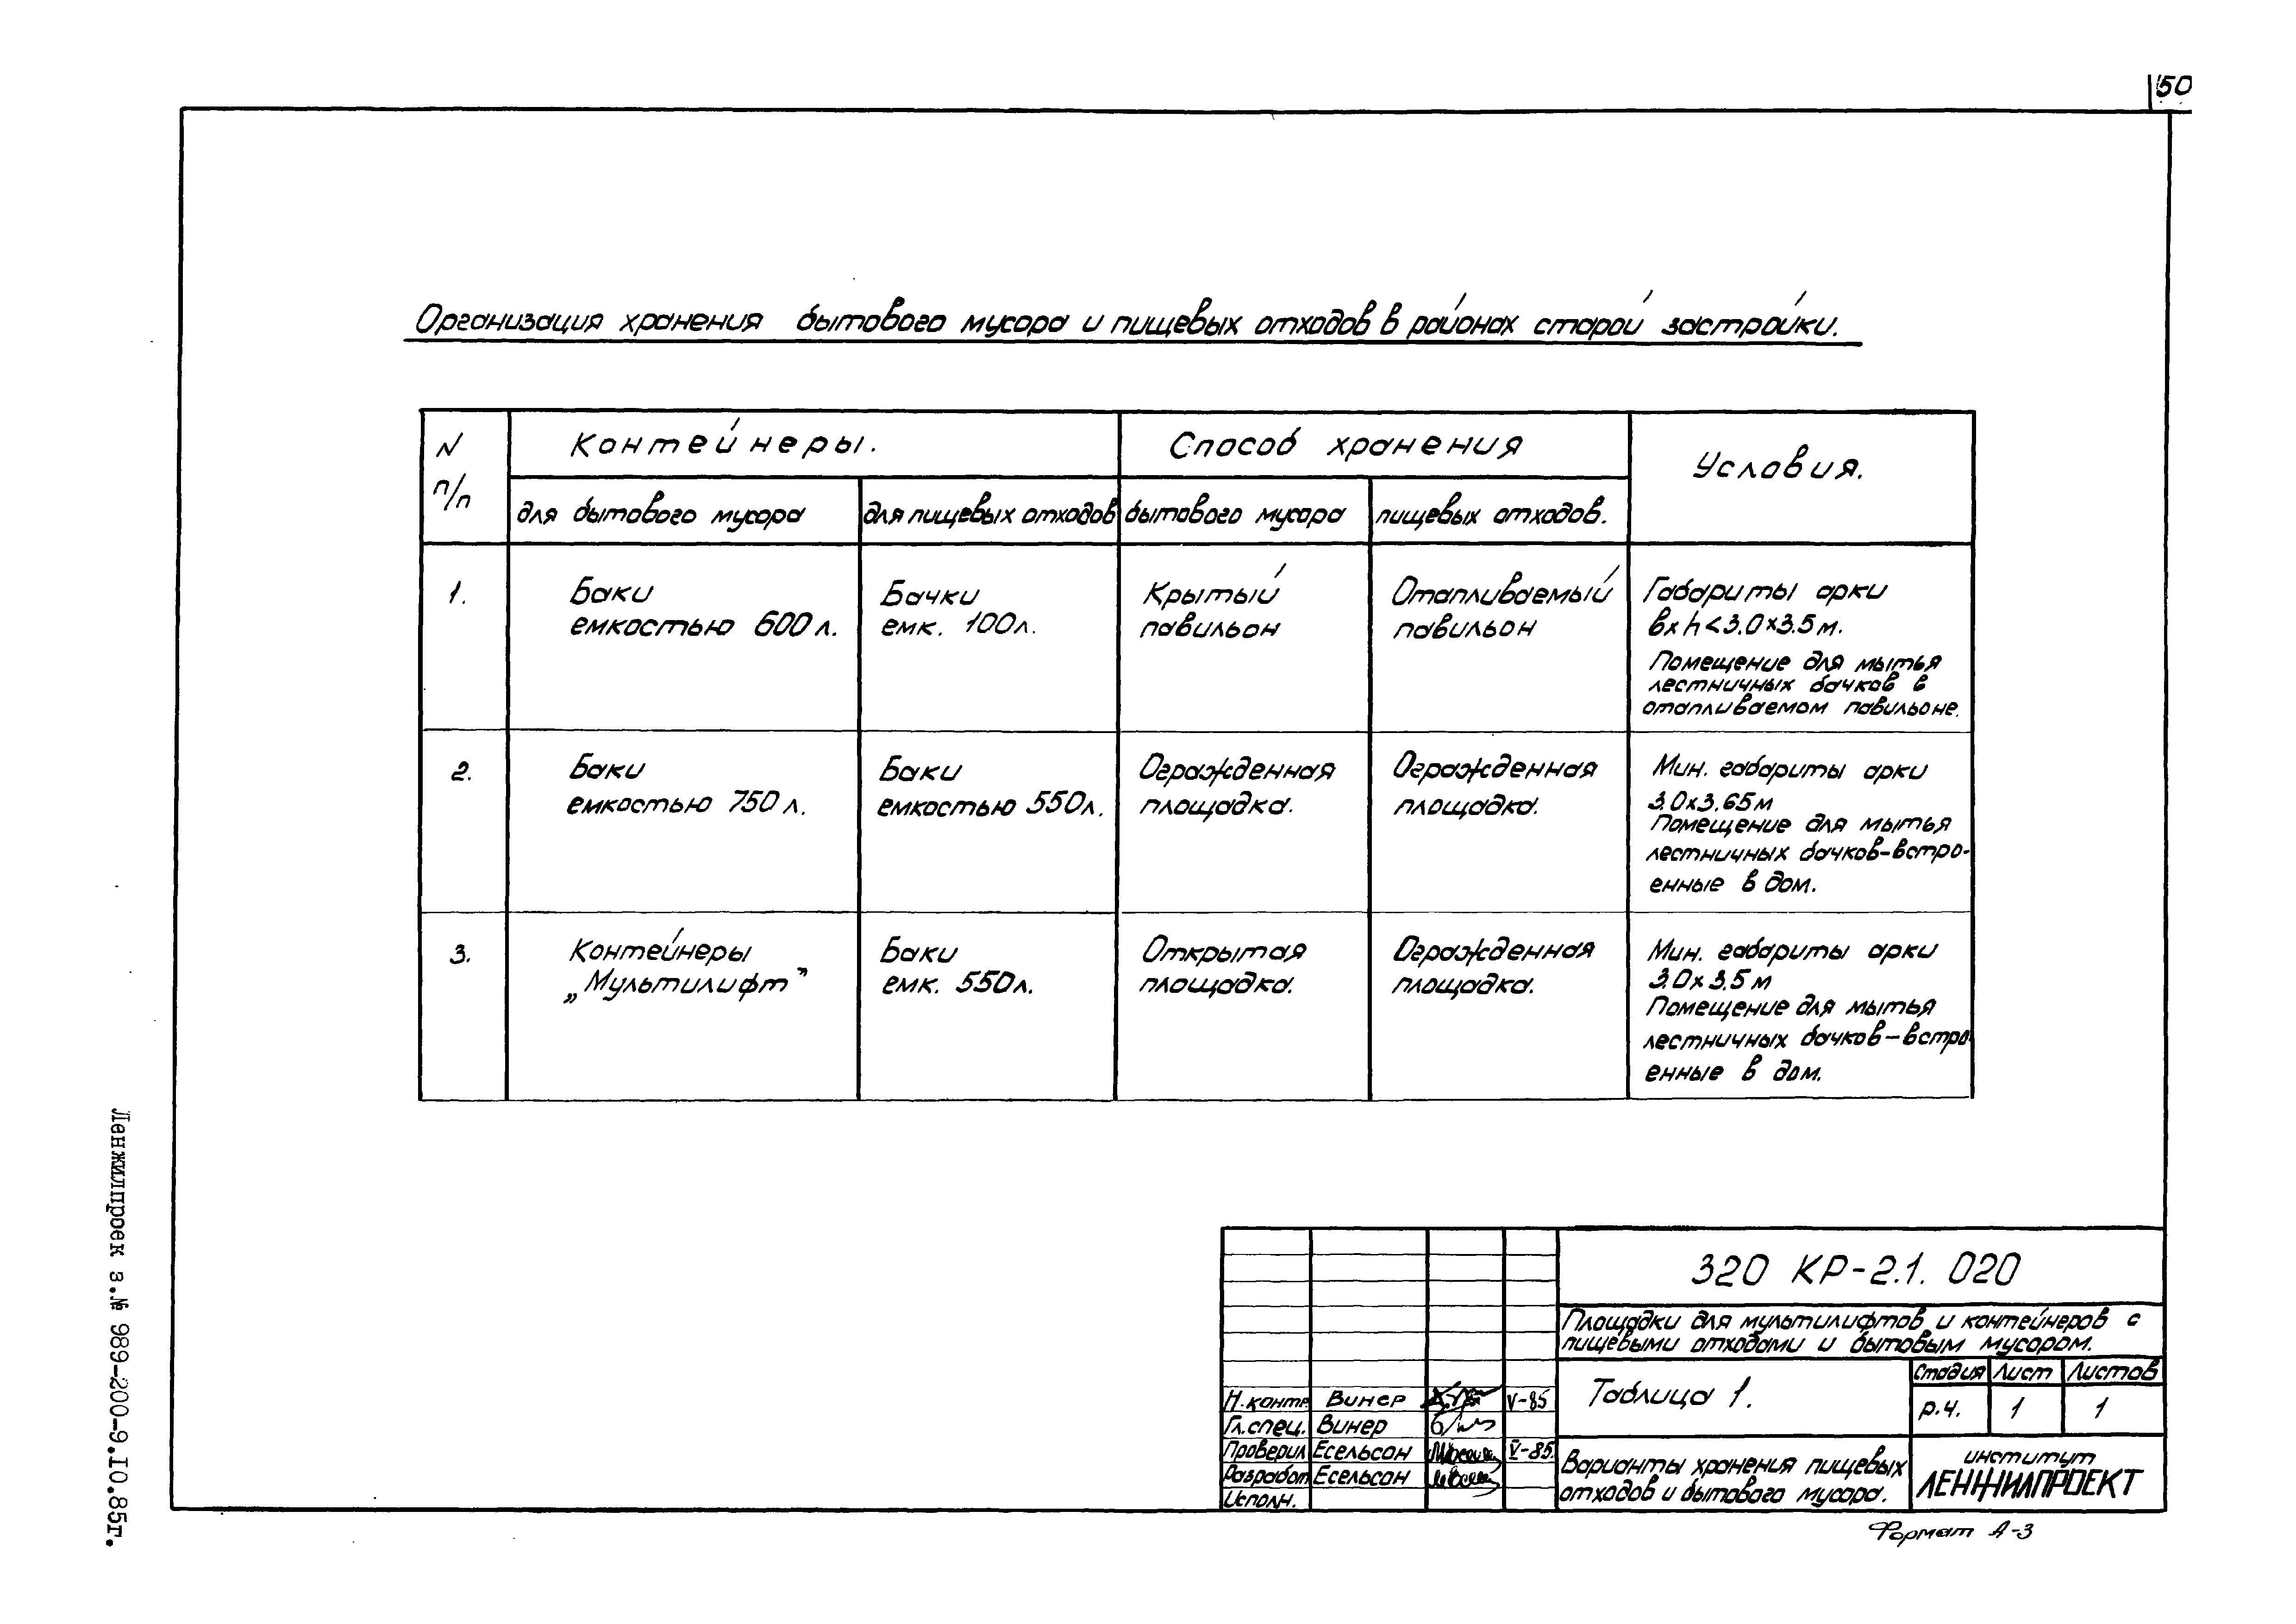 50
Организация хранения бытового мусора и пищевых отходов в районах старой застройки.
N п/п
Контейнеры.
Способ хранения
Условия.
для бытового мусора
для пищевых отходов
бытового мусора
пищевых отходов.
1.
Баки
емкостью 600 л.
Бачки
емк. 100 л.
Крытый
павильон
Отапливаемый
павильон
Габариты арки
в x h < 3.0 x 3.5 м.
Помещение для мытья
лестничных бачков в
отапливаемом павильоне.
2.
Баки
емкостью 750 л.
Баки
емкостью 550 л.
Огражденная
площадка.
Огражденная
площадка.
Мин. габариты арки
3.0 x 3.65 м
Помещение для мытья
лестничных бачков-встро-
енные в дом.
3.
Контейнеры
„Мультилифт"
Баки
емк. 550 л.
Открытая
площадка.
Огражденная
площадка.
Мин. габариты арки
3.0 x 3.5 м
Помещение для мытья
лестничных бачков-встро
енные в дом.
320 КР-2.1. 020
Площадки для мультилифтов и контейнеров с
пищевыми отходами и бытовым мусором.
Таблица 1.
Стадия Лист Листов
р.ч. 1 1
Н.контр. Винер V-85
Гл.спец. Винер
Проверил Есельсон V-85.
Разработ Есельсон
Исполн.
Варианты хранения пищевых
отходов и бытового мусора.
институт
ЛЕНЖИЛПРОЕКТ
Формат А-3
Ленжилпроек з.№ 989-200-9.10.85г.